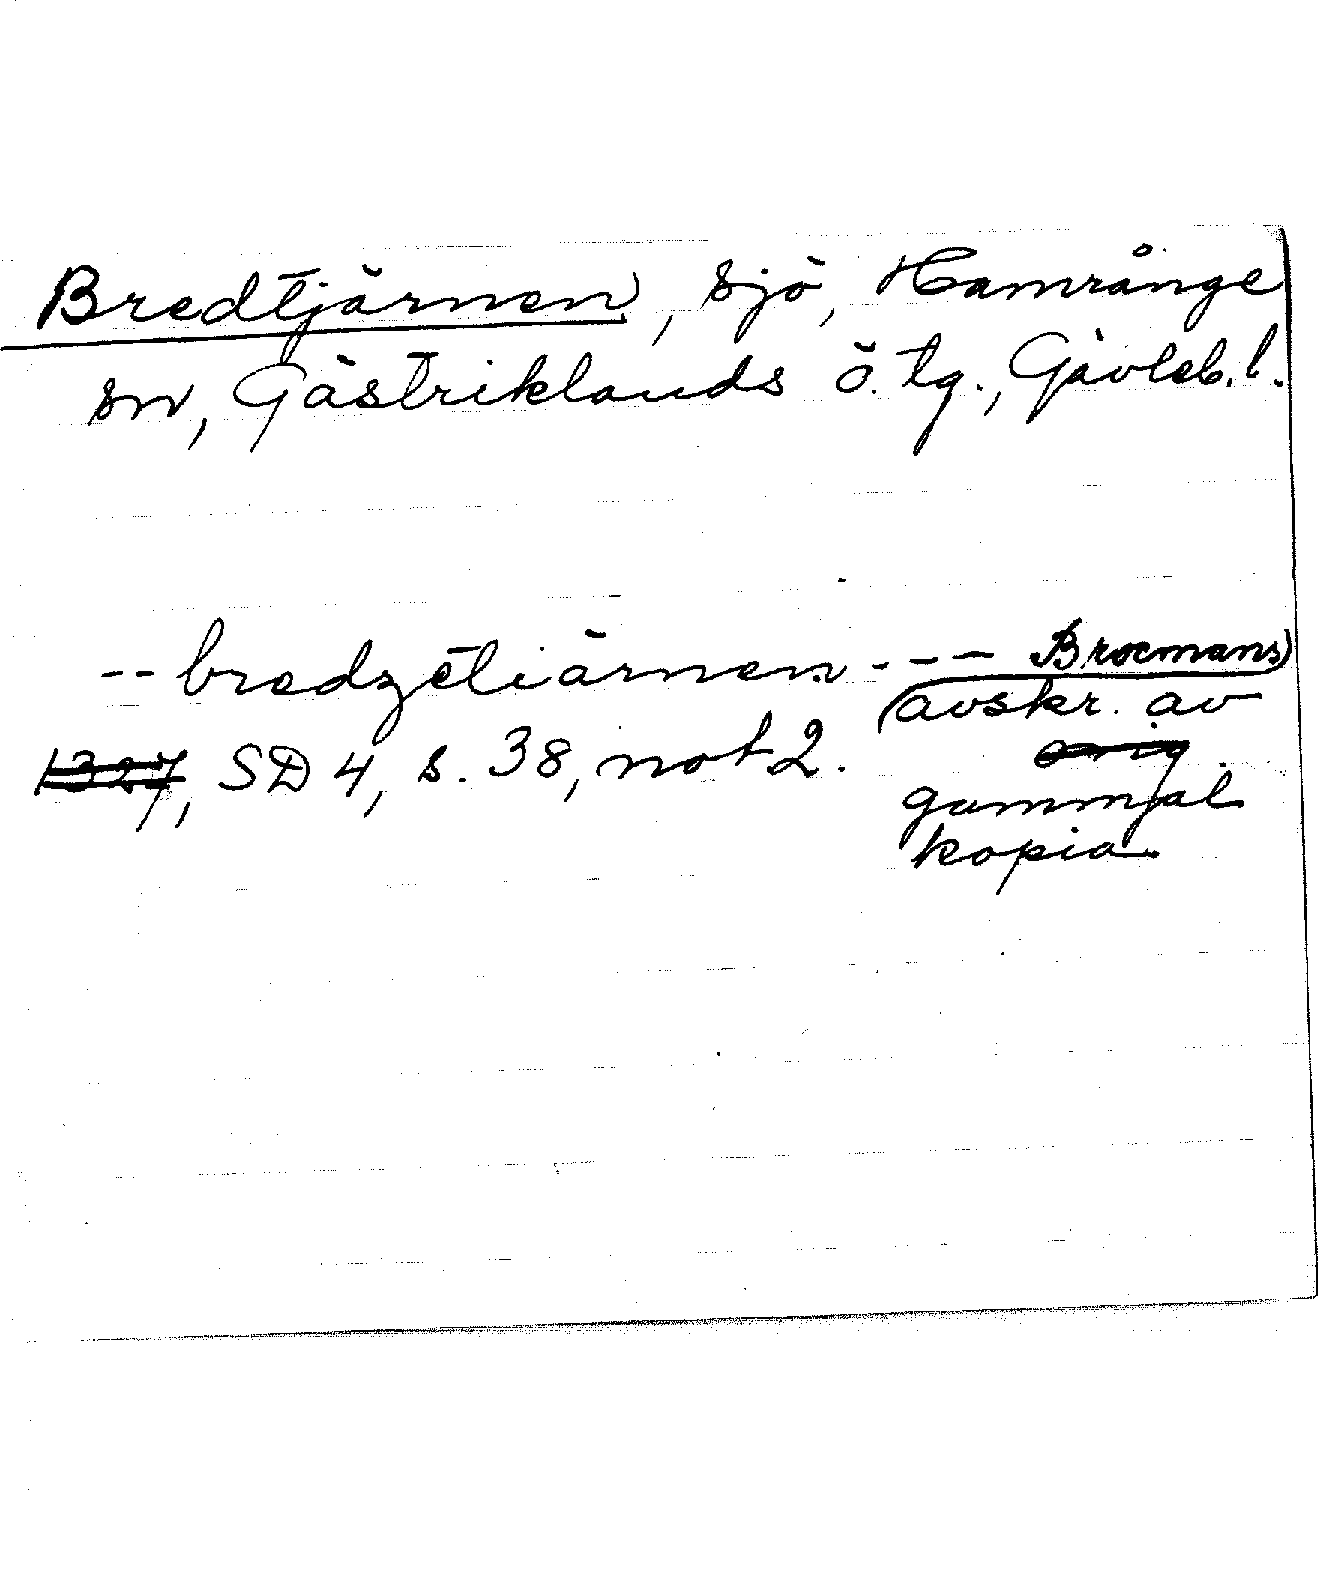 Bredtjärnen, sjö, Hamrånge
sn, Gästriklands ö. tg., Gävleb. l.
-- bredzetiärnen --- Brocmans
avskr. av
1327, SD 4, s. 38, not 2.
orig.
gammal
kopia.